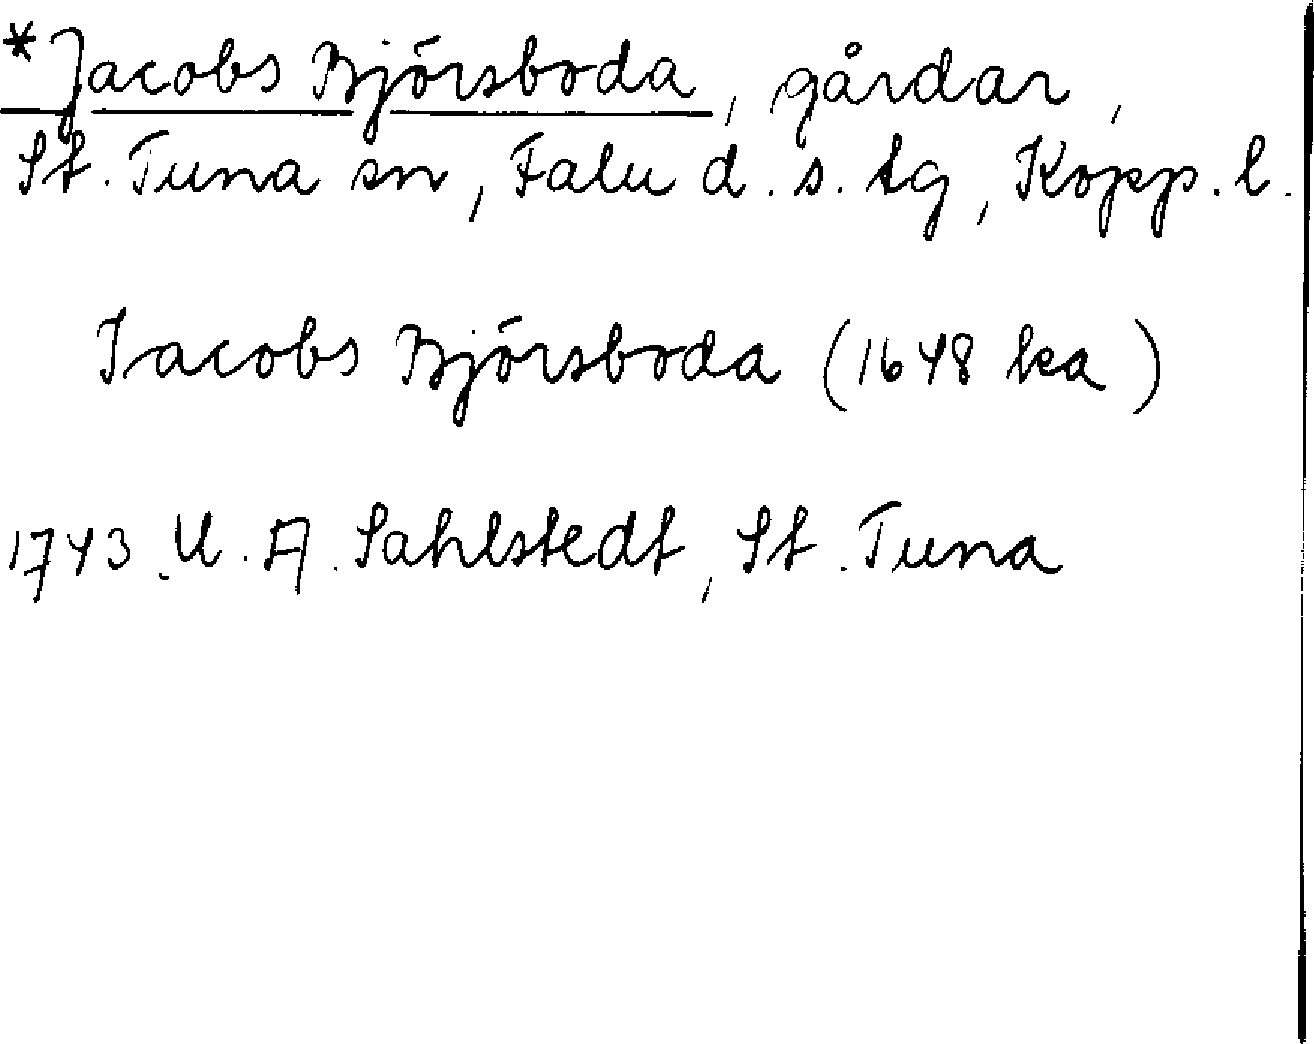 *Jacobs Bjórsboda, gårdar,
St. Tuna sn, Falu d. s. tg, Kopp. l.
Jacobs Bjórsboda (1648 ka)
1743. U. A. Sahlstedt, St. Tuna